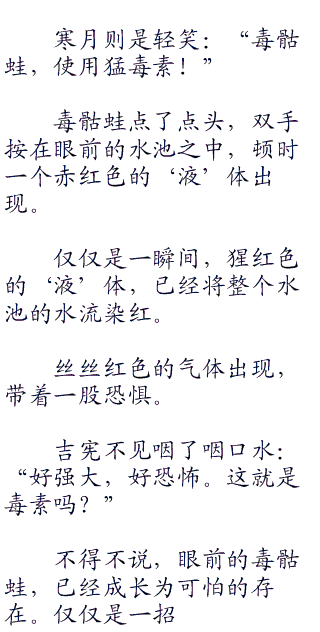 寒月则是轻笑：“毒骷
蛙，使用猛毒素！”
毒骷蛙点了点头，双手
按在眼前的水池之中，顿时
一个赤红色的‘液’体出
现。
仅仅是一瞬间，猩红色
的‘液’体，已经将整个水
池的水流染红。
丝丝红色的气体出现，
带着一股恐惧。
吉宪不见咽了咽口水：
“好强大，好恐怖。这就是
毒素吗？”
不得不说，眼前的毒骷
蛙，已经成长为可怕的存
在。仅仅是一招